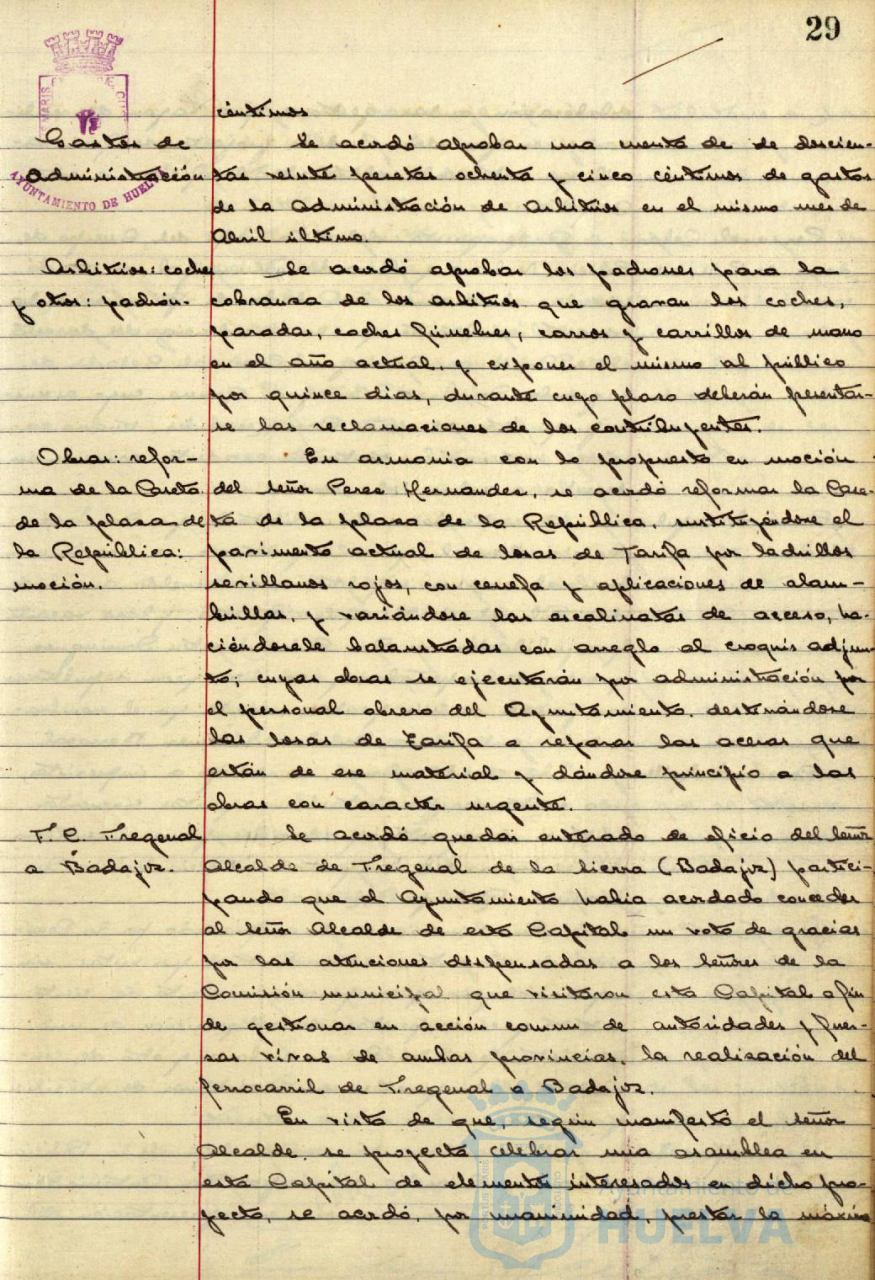 29
céntimos
Gastos de
Administración
Se acordó aprobar una cuenta de de doscien-
tas veinte pesetas ochenta y cinco céntimos de gastos
de la Administración de Arbitrios en el mismo mes de
Abril último.
Arbitrios: coches
y otros: padrón.
Se acordó aprobar los padrones para la
cobranza de los arbitrios que gravan los coches,
paradas, coches fúnebres, carros y carrillos de mano
en el año actual, y exponer el mismo al público
por quince dias, durante cuyo plazo deberán presentar-
se las reclamaciones de los contribuyentes.
Obras: refor-
ma de la Caseta
de la plaza de
la República:
moción.
En armonia con lo propuesto en moción
del señor Perez Hernandez, se acordó reformar la Case-
ta de la plaza de la República, sustituyéndose el
pavimento actual de losas de Tarifa por ladrillos
sevillanos rojos, con cenefa y aplicaciones de alam-
brillas, y variándose las escalinatas de acceso, ha-
ciéndosele balaustradas con arreglo al croquis adjun-
to; cuyas obras se ejecutarán por administración por
el personal obrero del Ayuntamiento, destinándose
las losas de Tarifa a reparar las aceras que
están de ese material y dándose principio a las
obras con caracter urgente.
F. C. Fregenal
a Badajoz.
Se acordó quedar enterado de oficio del Señor
Alcalde de Fregenal de la Sierra (Badajoz) partici-
pando que el Ayuntamiento habia acordado conceder
al Señor Alcalde de esta Capital un voto de gracias
por las atenciones dispensadas a los Señores de la
Comisión municipal que visitaron esta Capital a fin
de gestionar en acción comun de autoridades y fuer-
zas vivas de ambas provincias, la realización del
ferrocarril de Fregenal a Badajoz.
En vista de que, según manifestó el señor
Alcalde, se proyecta celebrar una asamblea en
esta Capital de elementos interesados en dicho pro-
yecto, se acordó, por unanimidad, prestar la máxima
AYUNTAMIENTO DE HUELVA
Ayuntamiento de
HUELVA